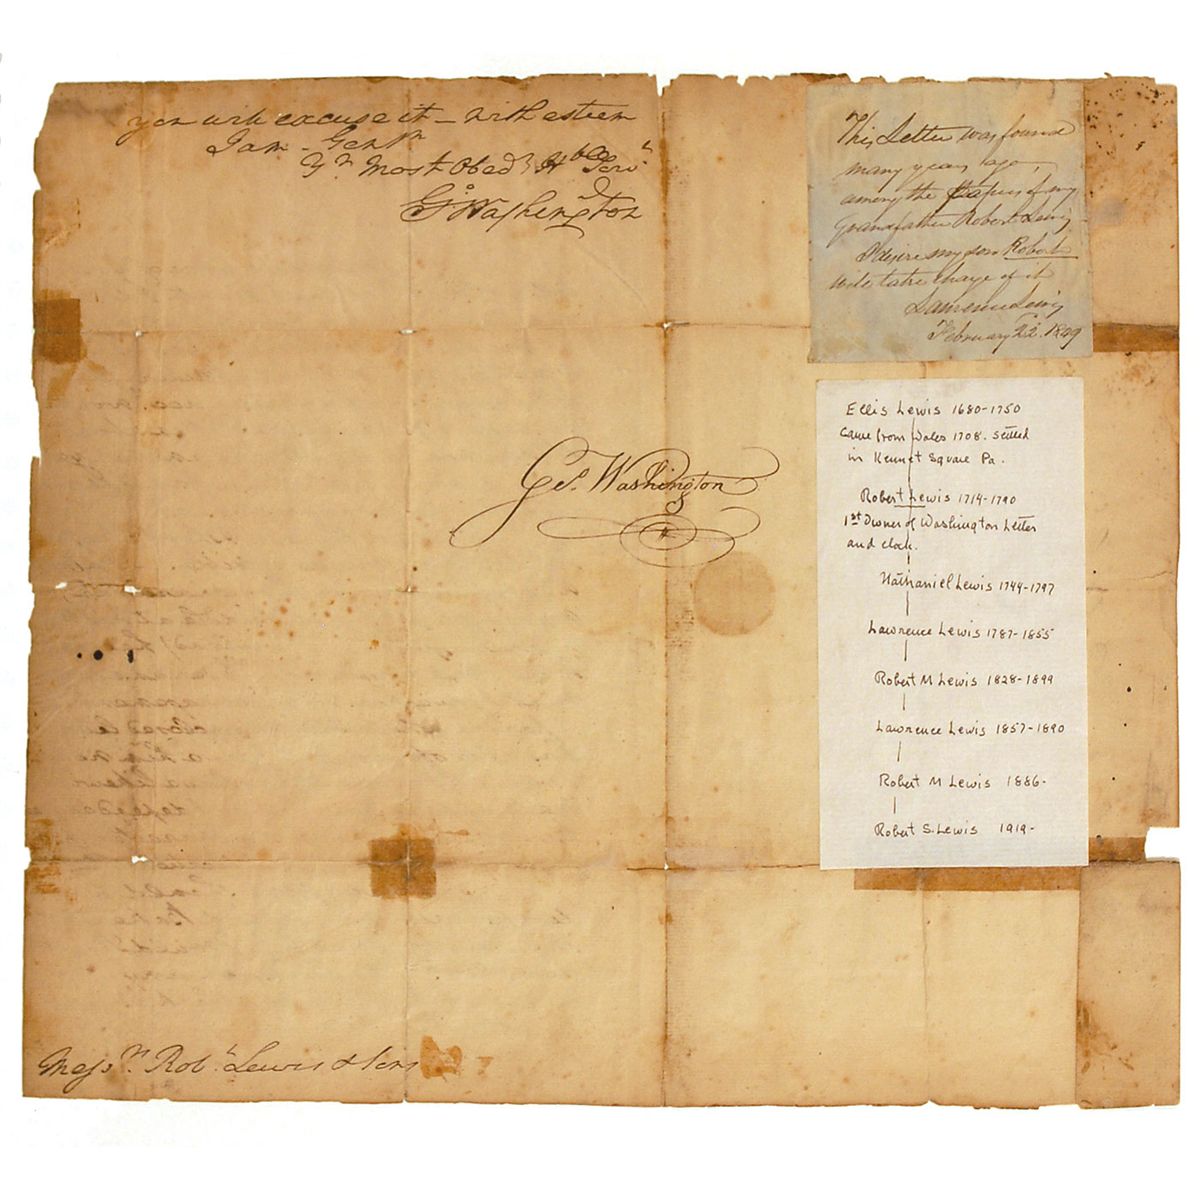 you will excuse it – with esteem
I am – Gentⁿ
Yʳ Most Obedᵗ Hᵇˡᵉ Servᵗ
Gº Washington
Geº. Washington
Messʳˢ. Robᵗ. Lewis & Sons
This Letter was found
many years ago,
among the Papers of my
Grandfather Robert Lewis –
I desire my son Robert
will take charge of it
Lawrence Lewis
February 22. 1849
Ellis Lewis 1680-1750
Came from Wales 1708. settled
in Kennet Square Pa.
Robert Lewis 1714-1790
1st Owner of Washington Letter
and clock.
Nathaniel Lewis 1744-1797
Lawrence Lewis 1787-1855
Robert M Lewis 1828-1899
Lawrence Lewis 1857-1890
Robert M Lewis 1886-
Robert S. Lewis 1919-